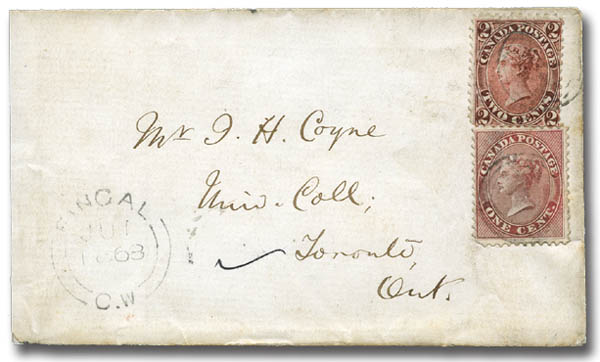 2 2
CANADA POSTAGE
TWO CENTS
2 2
CANADA POSTAGE
ONE CENT.
Mr J. H. Coyne
Univ. Coll;
Toronto,
Ont.
FINGAL
JU 1
1868
C.W